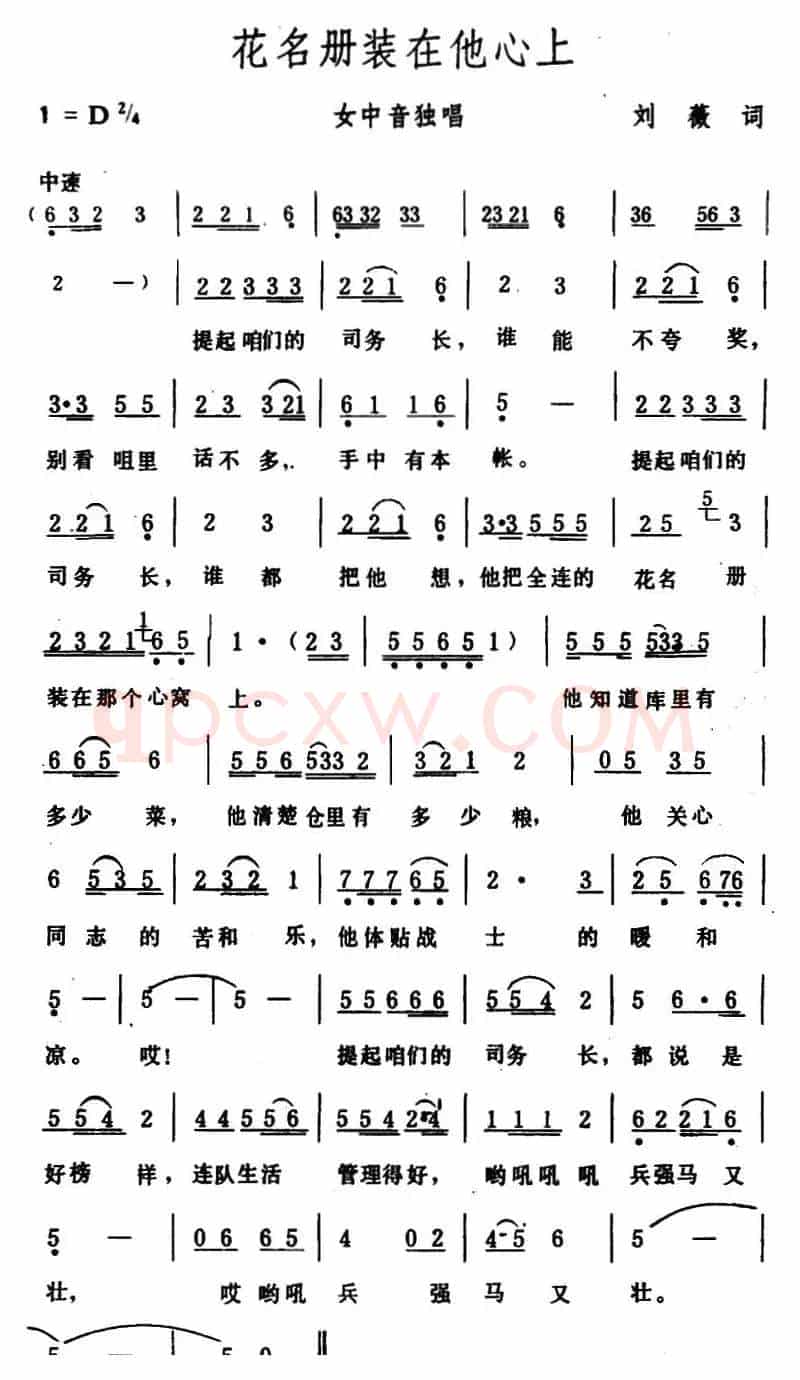 花名册装在他心上
1 = D 2/4 女中音独唱 刘薇词
中速
(6 3 2 3 | 2 2 1 6 | 63 32 33 | 23 21 6 | 36 56 3 |
2 — ) | 2 2 3 3 3 | 2 2 1 6 | 2 3 | 2 2 1 6 |
提起咱们的 司务长, 谁能 不夸奖,
3·3 5 5 | 2 3 3 21 | 6 1 1 6 | 5 — | 2 2 3 3 3 |
别看咀里 话不多, 手中有本 帐。 提起咱们的
2 2 1 6 | 2 3 | 2 2 1 6 | 3·3 5 5 5 | 2 5 5 3 |
司务长, 谁都 把他想, 他把全连的 花名册
2 3 2 1 1 6 5 | 1 · ( 2 3 | 5 5 6 5 1 ) | 5 5 5 533 5 |
装在那个心窝 上。 他知道库里有
6 6 5 6 | 5 5 6 533 2 | 3 2 1 2 | 0 5 3 5 |
多少菜, 他清楚仓里有 多少粮, 他关心
6 5 3 5 | 2 3 2 1 | 7 7 7 6 5 | 2 · 3 | 2 5 6 76 |
同志的 苦和乐, 他体贴战 士的 暖和
5 — | 5 — | 5 — | 5 5 6 6 6 | 5 5 4 2 | 5 6 · 6 |
凉。 哎! 提起咱们的 司务长, 都说是
5 5 4 2 | 4 4 5 5 6 | 5 5 4 2 4 | 1 1 1 2 | 6 2 2 1 6 |
好榜样, 连队生活 管理得好, 哟吼吼吼 兵强马又
5 — | 0 6 6 5 | 4 0 2 | 4·5 6 | 5 — |
壮, 哎哟吼 兵强 马又 壮。
5 — | 5 0 ‖
qpcxw.COM